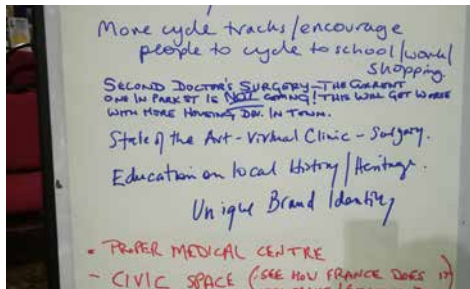 More cycle tracks/encourage
people to cycle to school/work/
shopping.
SECOND DOCTOR'S SURGERY - THE CURRENT
ONE IN PARK ST IS NOT COPING! THIS WILL GET WORSE
WITH MORE HOUSING DEV. IN TOWN.
State of the Art - Virtual Clinic - Surgery.
Education on local history/Heritage.
Unique Brand Identity
• PROPER MEDICAL CENTRE
- CIVIC SPACE (SEE HOW FRANCE DOES IT